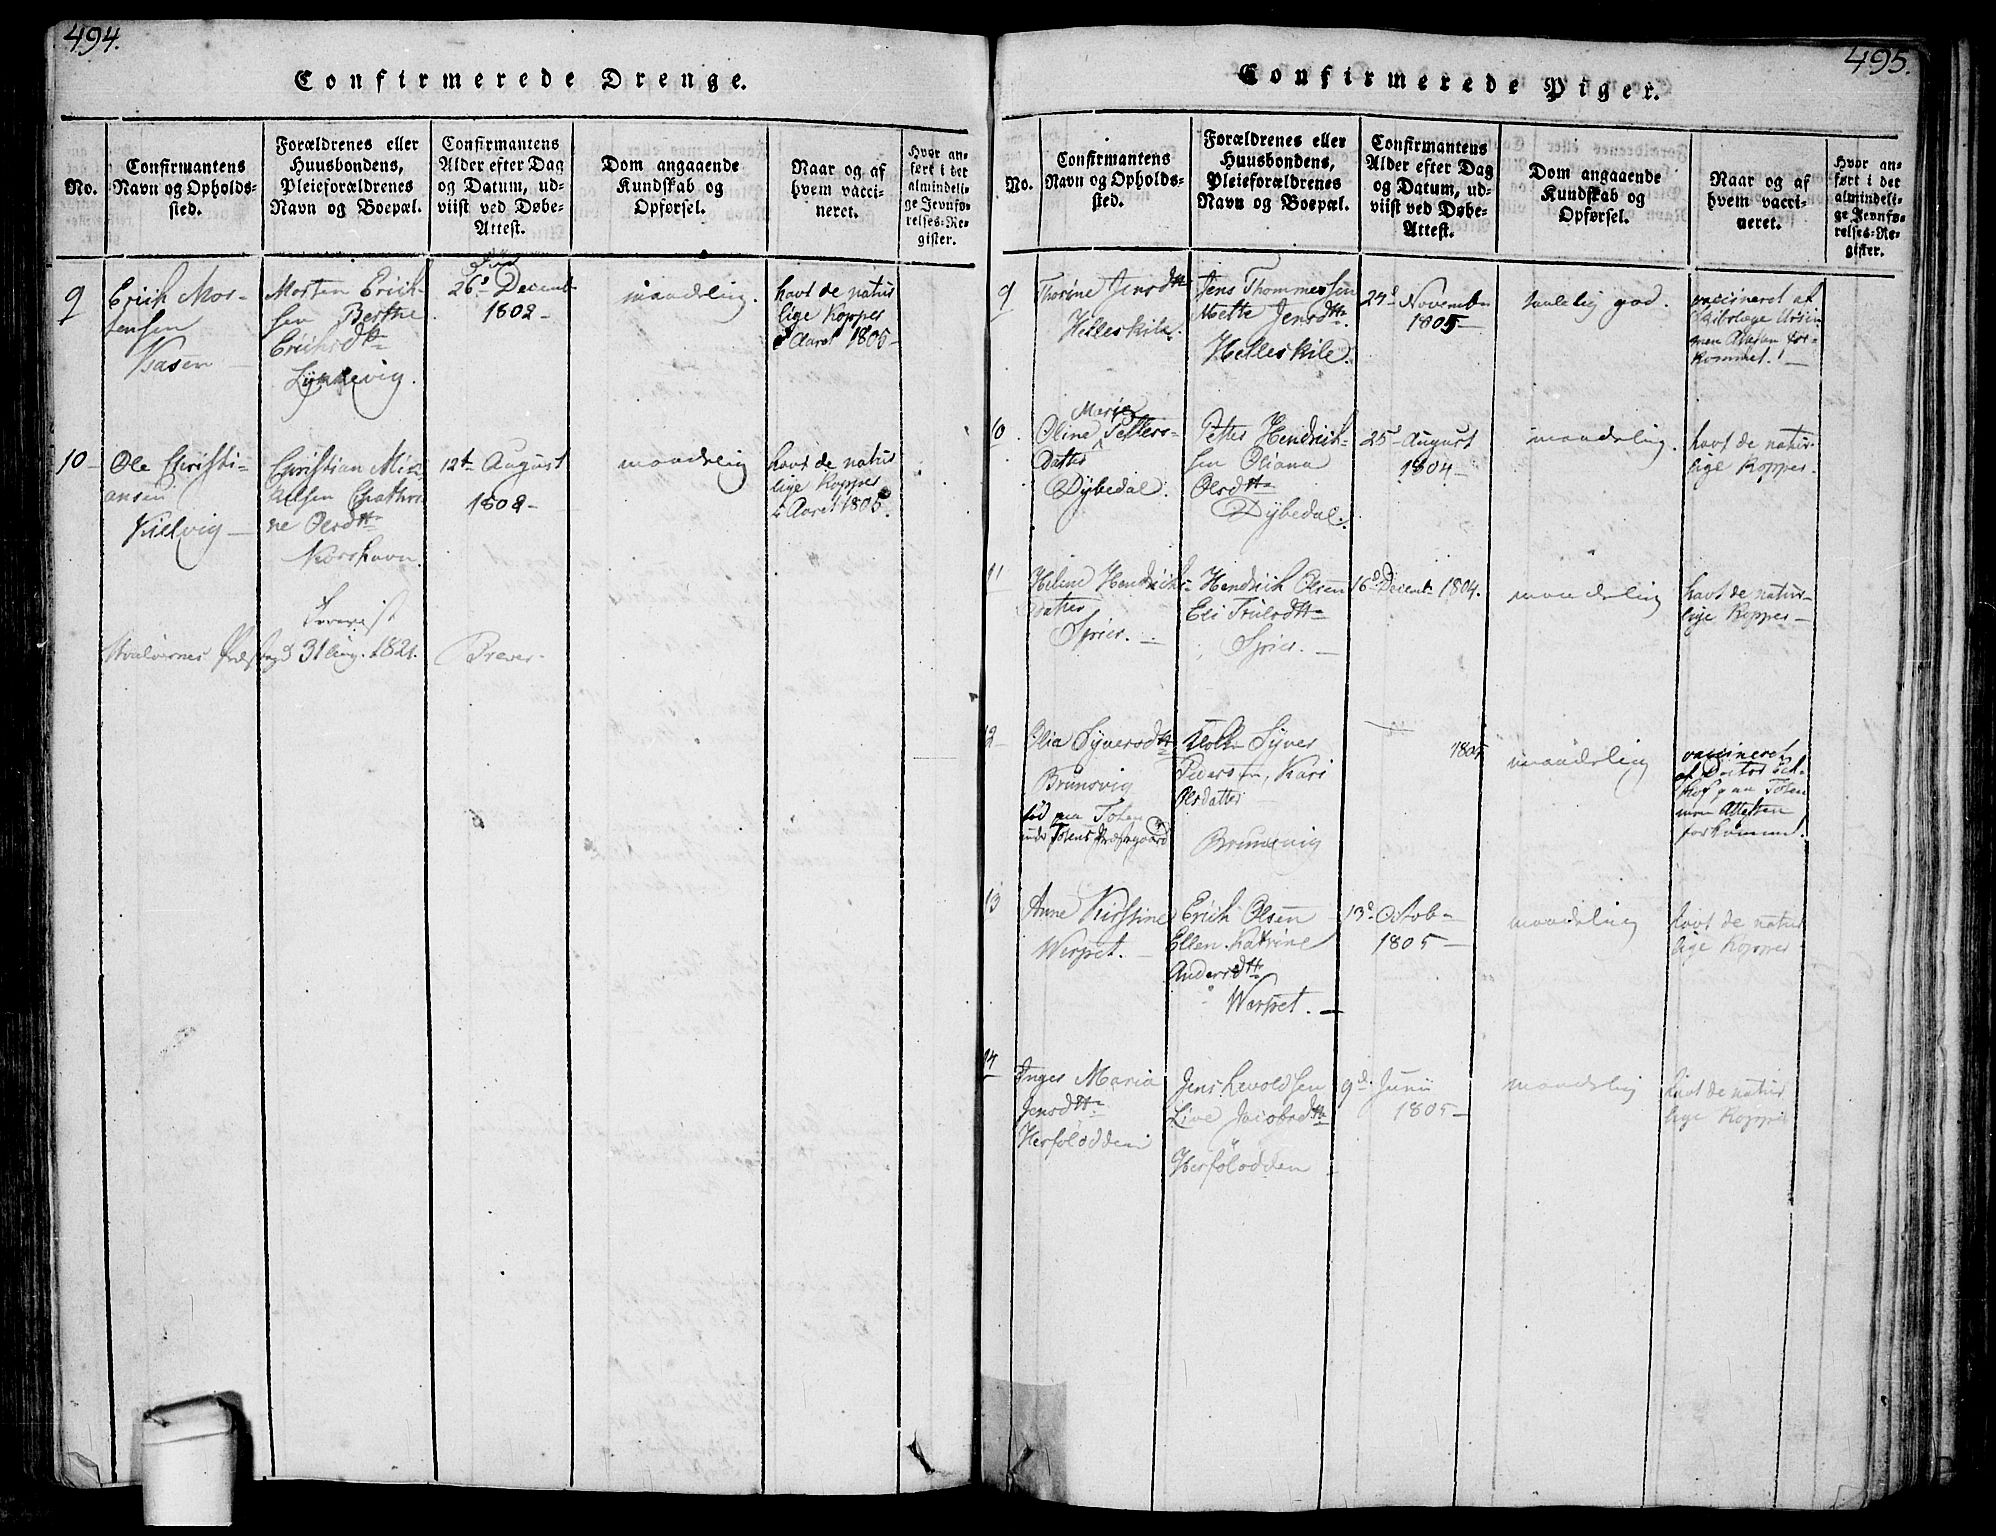 494.
Confirmerede Drenge.
No.
Confirmantens
Navn og Opholds-
sted.
Forældrenes eller
Huusbondens,
Pleieforældrenes
Navn og Boepæl.
Confirmantens
Alder efter Dag
og Datum, ud-
viist ved Døbe-
Attest.
Dom angaaende
Kundskab og
Opførsel.
Naar og af
hvem vacci-
neret.
Hvor an-
ført i det
almindeli-
ge Jevnfø-
relses-Re-
gister.
9
Erich Mor-
tensen
Morten Erich-
sen Berthe
Erichsdtr
Lyngevig.
26d Decemb
1802-
maadelig.
havt de natur
lige Kopper
Aaret 1805-
10-
Ole Christi-
ansen
Kilevig-
Christian
Cathri
ne Olsdtr
Korshavn.
12te August
1802-
maadelig
havt de natur
lige Kopper
Aaret 1805.
Præstegd 31 Aug. 1821. Brewer.
495.
Confirmerede Piger.
No.
Confirmantens
Navn og Opholds-
sted.
Forældrenes eller
Huusbondens,
Pleieforældrenes
Navn og Boepæl.
Confirmantens
Alder efter Dag
og Datum, ud-
viist ved Døbe-
Attest.
Dom angaaende
Kundskab og
Opførsel.
Naar og af
hvem vacci-
neret.
Hvor an-
ført i det
almindeli-
ge Jevnfø-
relses-Re-
gister.
9
Thorine Jensdtr
Helleskile.
Jens Thommesen
Mette Jensdtr.
Helleskile.
24d November
1805-
taalelig god.
vaccineret af
men Attesten for-
kommet.
10.
Marie
Oline Petters-
Datter
Dybedal.
Petter Hendrich-
sen Oliana
Olsdtr
Dybedal.
25d August
1804-
maadelig.
havt de natur-
lige Kopper.
11
Helene Hendrichs-
datter
Spiær.-
Hendrich Olsen
Eli Trulsdtr
Spiær.-
16d Decemb 1804.
maadelig
havt de natur-
lige Kopper-
12-
Olia Syversdtr
Brunsvig
fød paa Toten
under Totens Præstegaard
Syver
Pedersen, Kari
Olsdatter
Brunsvig
1805
maadelig
vaccineret
af Doctor
paa Toten
men Attesten
forkommen!
13
Anne Kirstine
Werpet.-
Erich Olsen
Ellen Katrine
Andersdtr
Werpet.-
13d Octob-
1805-
maadelig
havt de natur
lige Kopper
14
Inger Maria
Jensdtr
Herfølodden
Jens Levoldsen
Live Jacobsdtr
Herfølodden
9d Junii
1805-
maadelig
havt de natur
lige Kopper